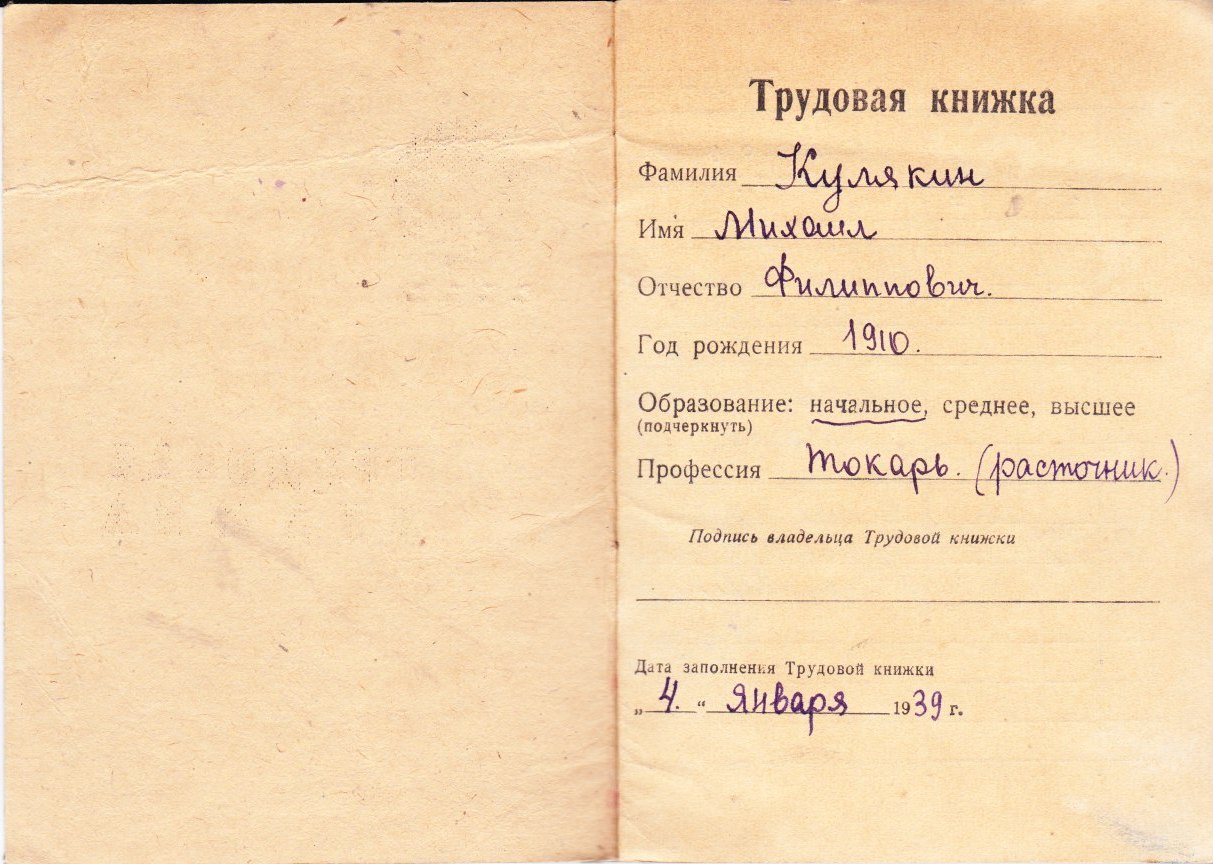 Трудовая книжка
Фамилия Кулякин
Имя Михаил
Отчество Филиппович.
Год рождения 1910.
Образование: начальное, среднее, высшее
(подчеркнуть)
Профессия Токарь. (расточник.)
Подпись владельца Трудовой книжки
Дата заполнения Трудовой книжки
„ 4. “ Января 1939 г.